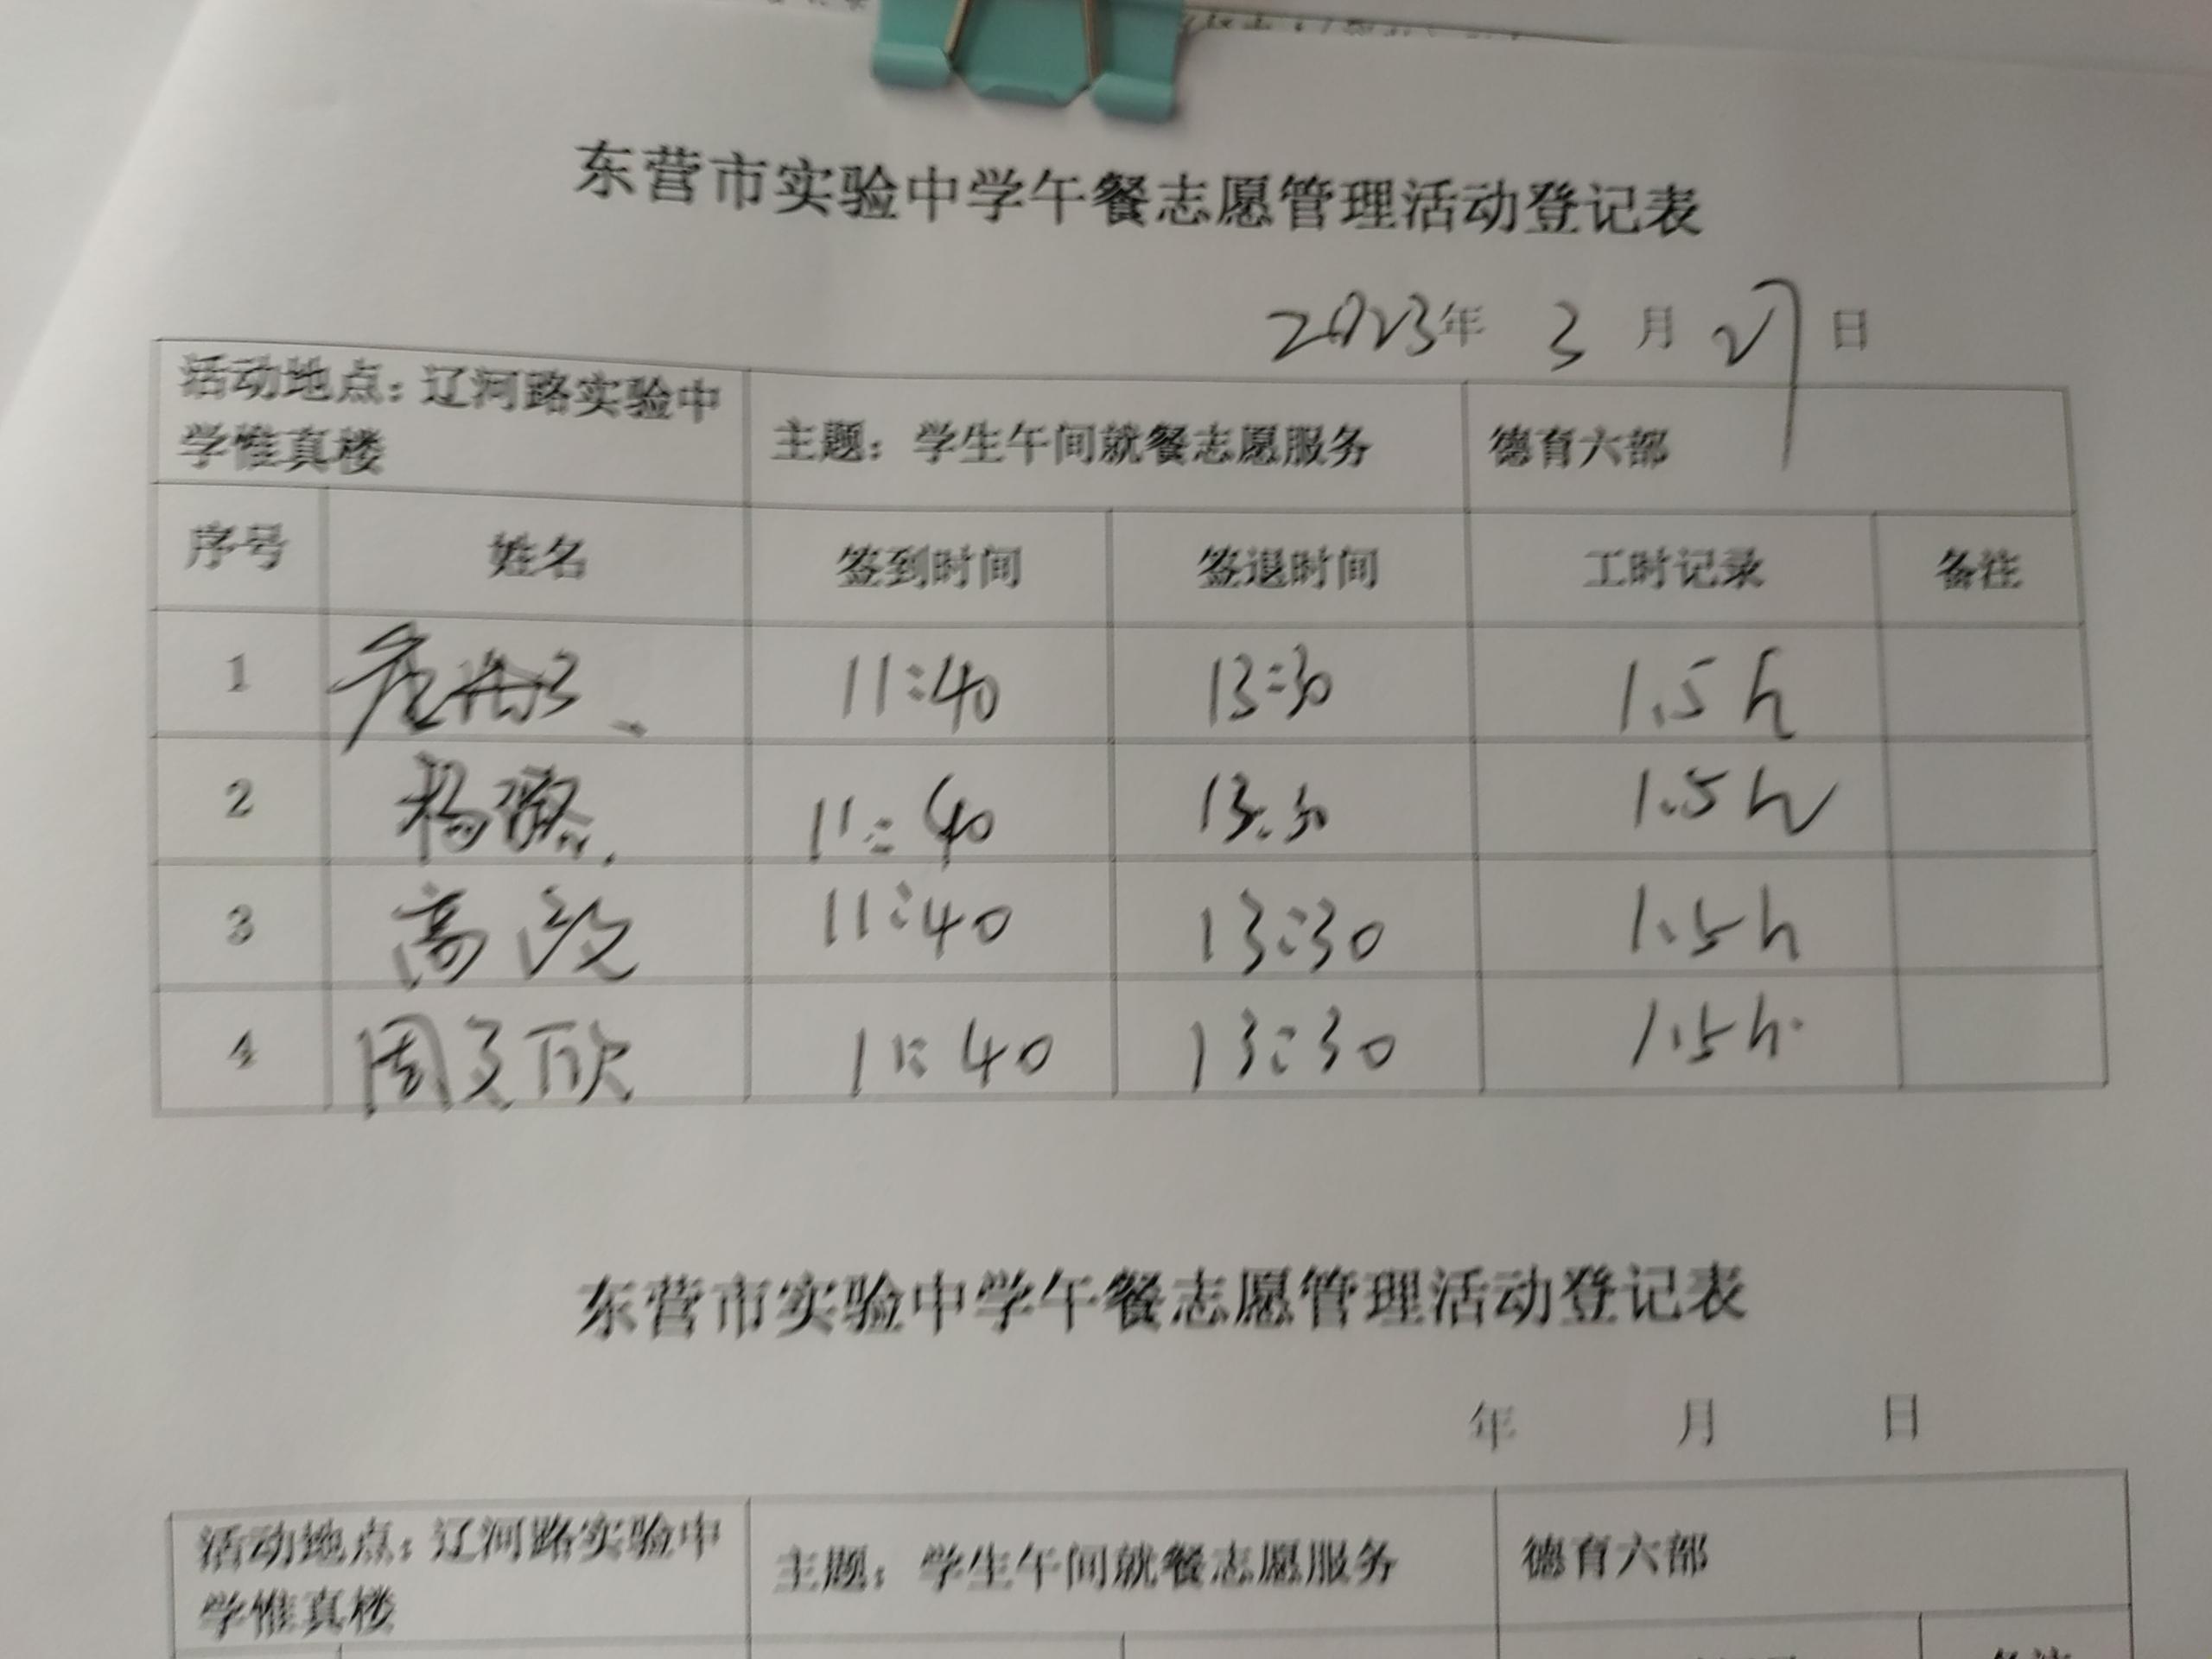 东营市实验中学午餐志愿管理活动登记表
2023年 3 月 27 日
活动地点：辽河路实验中
学惟真楼
主题：学生午间就餐志愿服务
德育六部
序号 姓名 签到时间 签退时间 工时记录 备注
1 11:40 13:30 1.5h
2 杨 11:40 13:30 1.5h
3 高 11:40 13:30 1.5h
4 周文欣 11:40 13:30 1.5h
东营市实验中学午餐志愿管理活动登记表
年 月 日
活动地点：辽河路实验中
学惟真楼
主题：学生午间就餐志愿服务
德育六部
备注